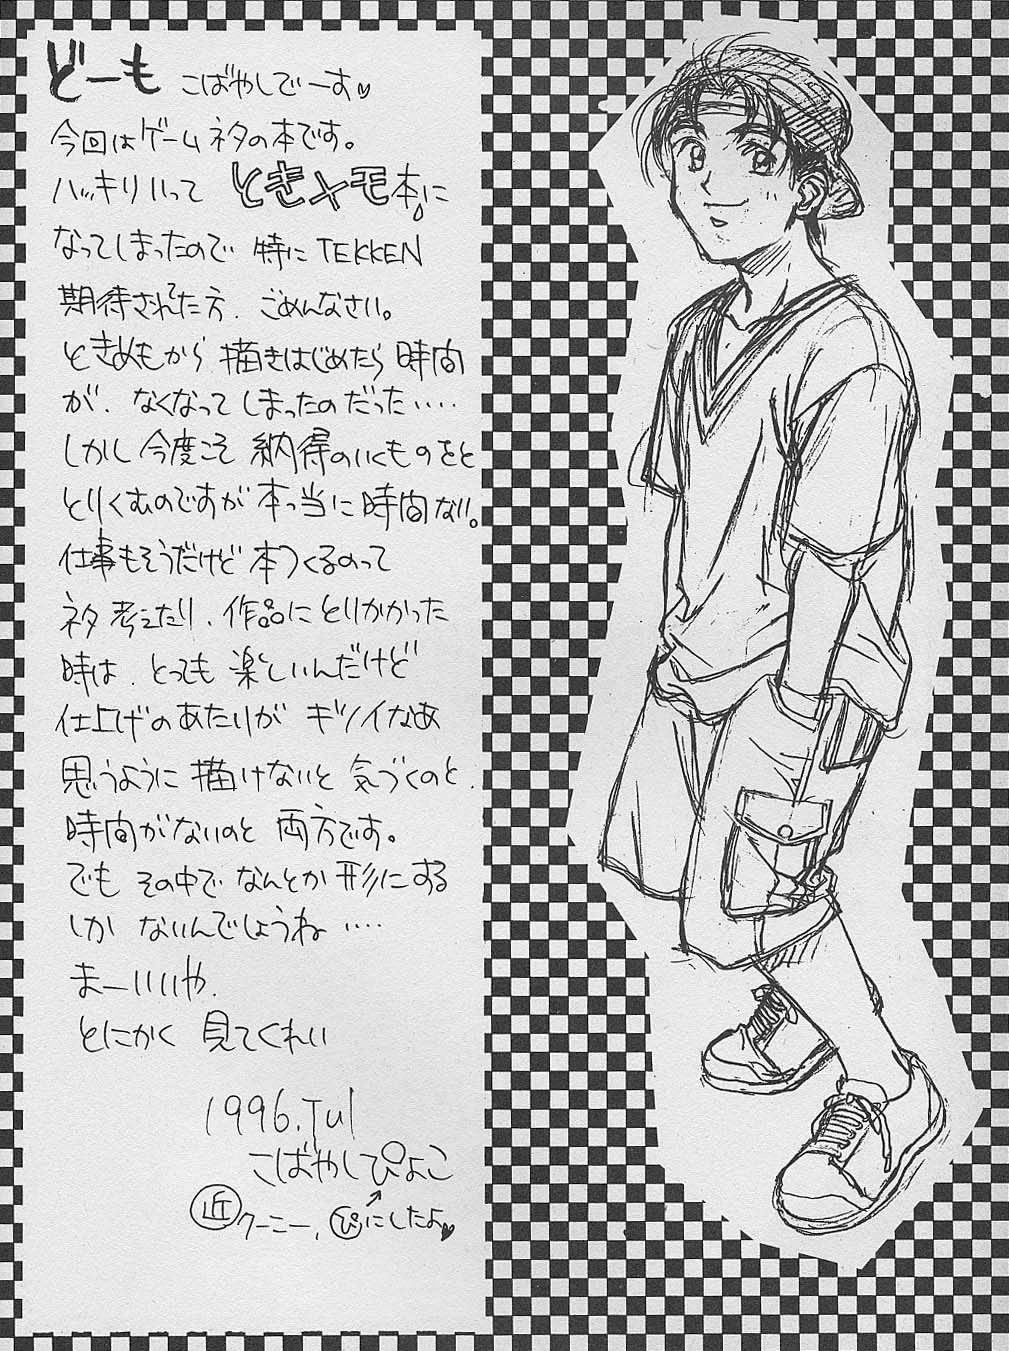 どーも こばやしでーす♡
今回はゲームネタの本です。
ハッキリいって ときメモ本に
なってしまったので 特に TEKKEN
期待されてた方、ごめんなさい。
ときめもから 描きはじめたら 時間
が、なくなってしまったのだった・・・・
しかし 今度こそ 納得のいくものをと
とりくむのですが 本っ当に 時間ない。
仕事もそうだけど 本つくるのって
ネタ考えたり、作品にとりかかった
時は、とっても 楽しいんだけど
仕上げのあたりが キツイなあ
思うように 描けないと 気づくのと、
時間がないのと 両方です。
でも その中で なんとか 形にする
しか ないんでしょうね・・・・
まーいいや、
とにかく 見てくれい
1996.Jul
こばやしぴよこ
近 クーニー、ぴにしたよ♥